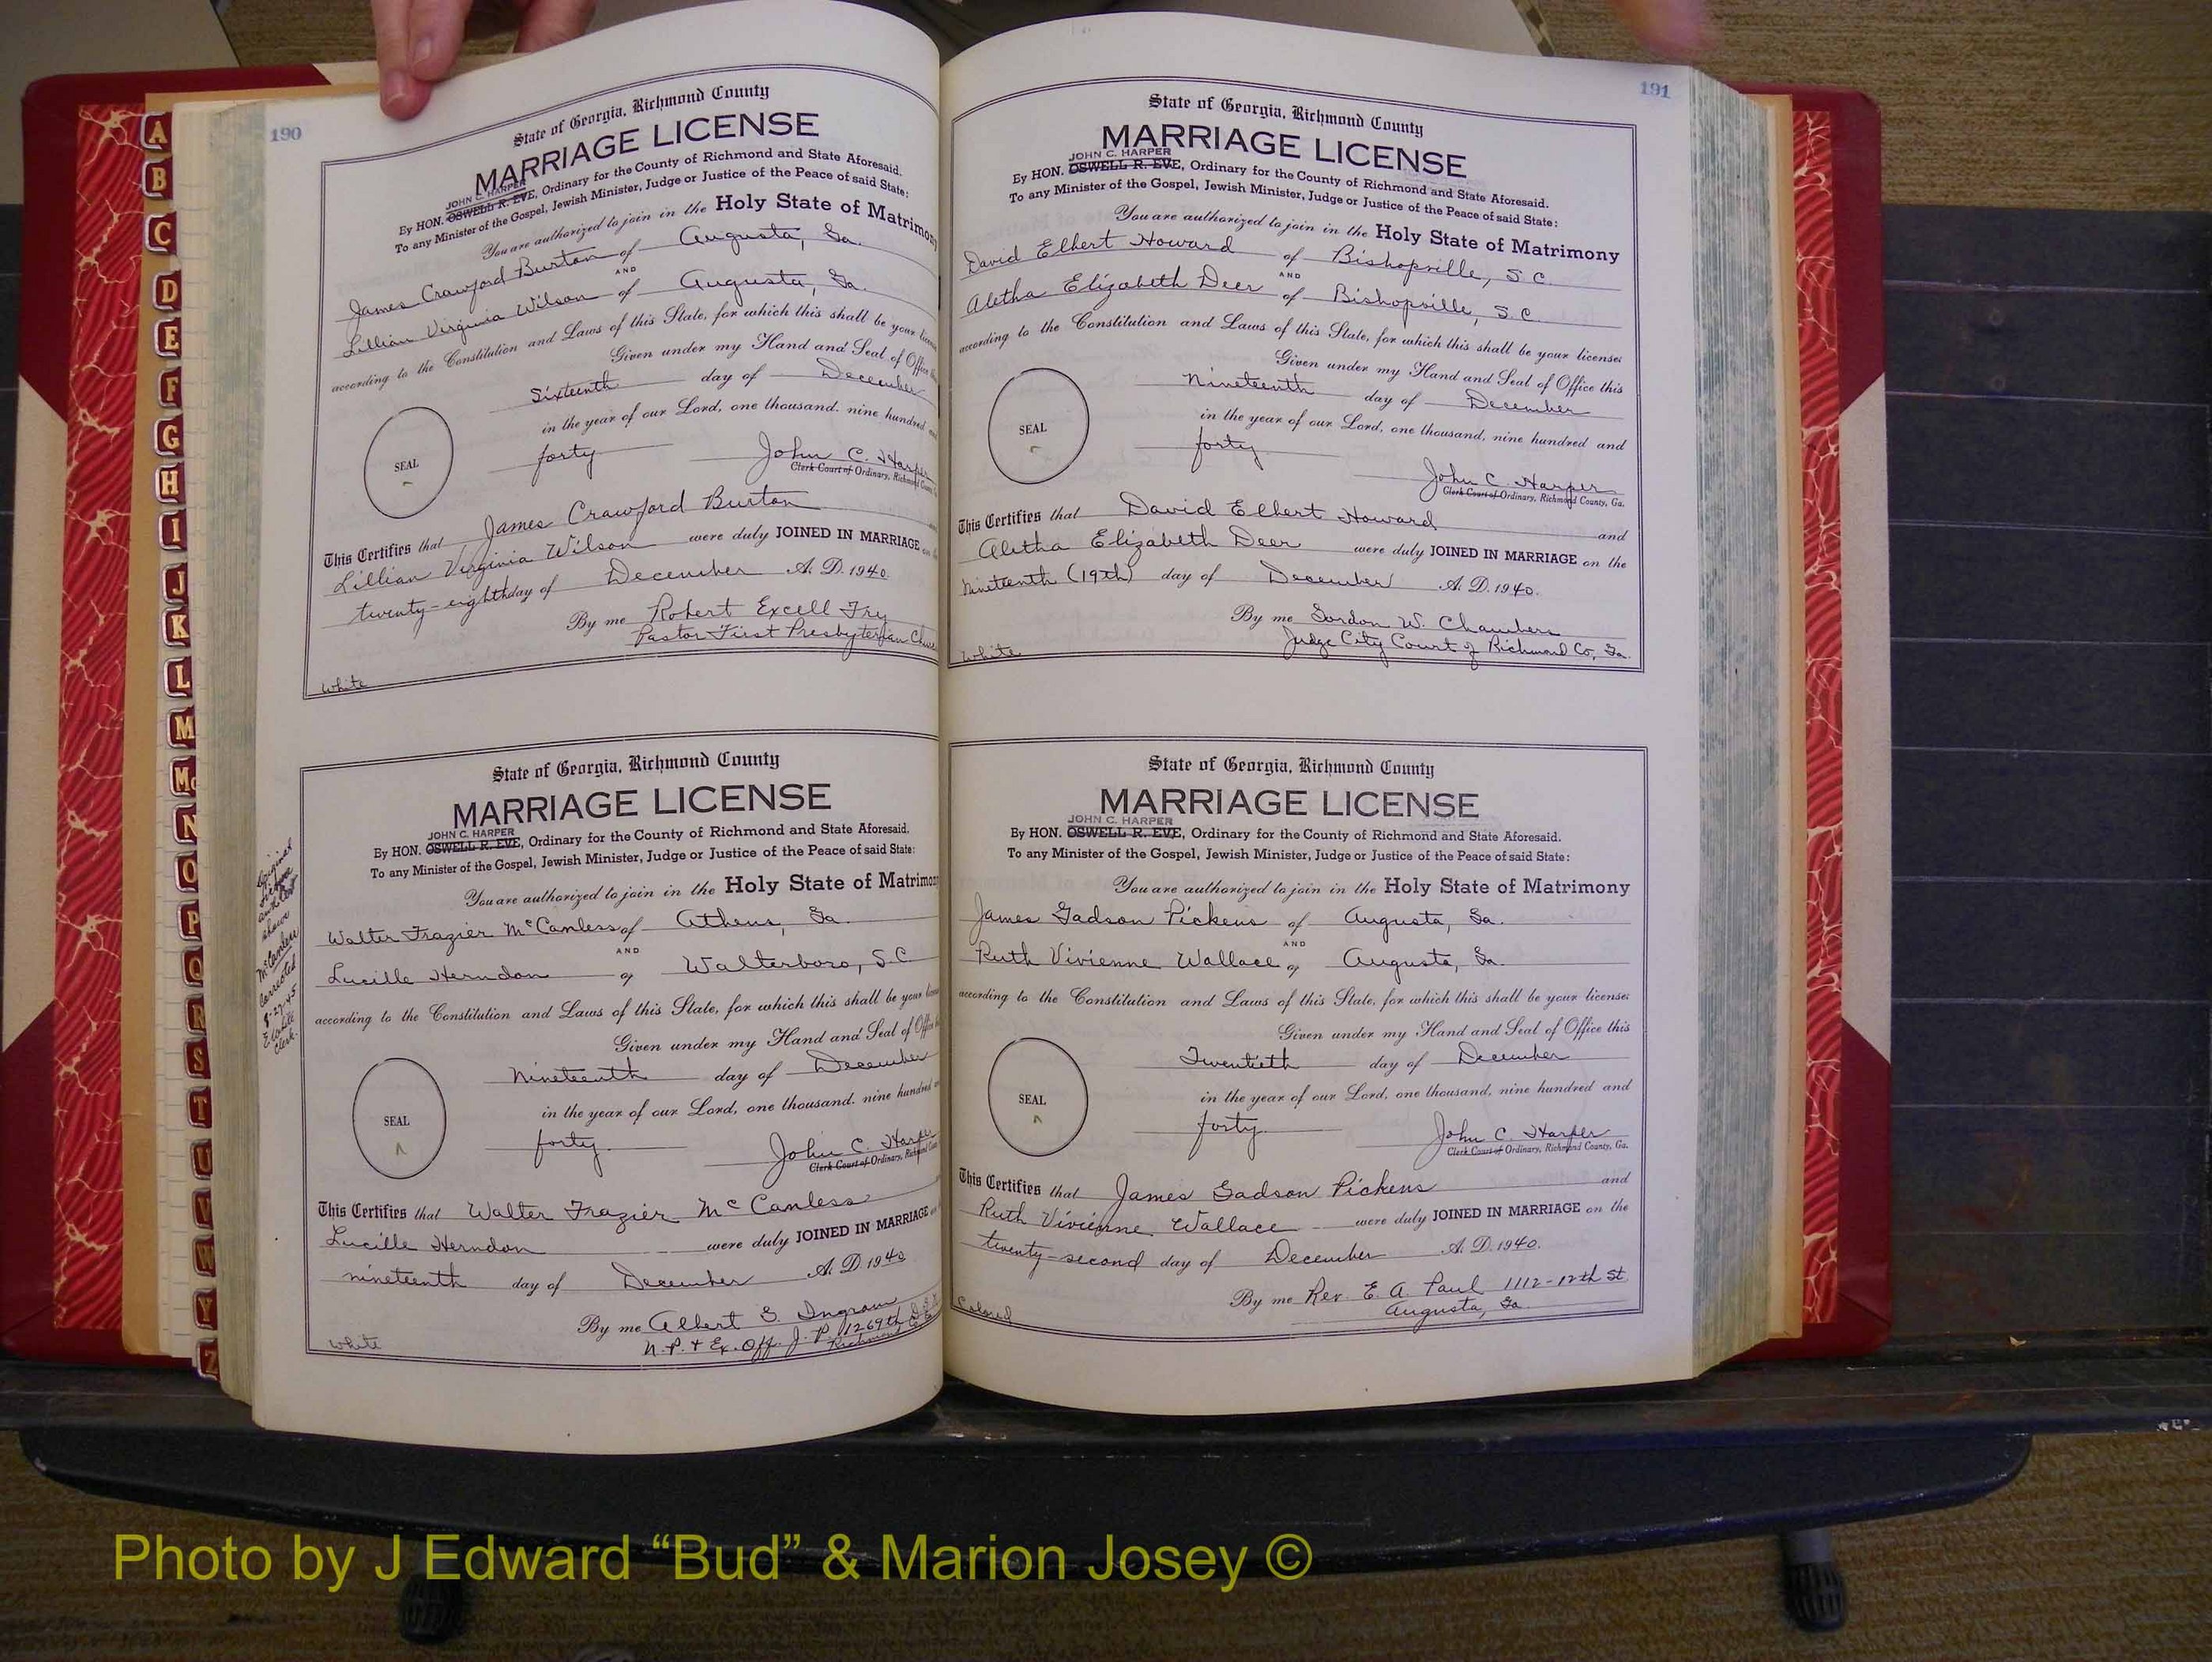 A
B
C
D
E
F
G
H
I
J
K
L
M
Mc
N
O
P
Q
R
S
T
U
V
W
Y
Z
190
State of Georgia, Richmond County
MARRIAGE LICENSE
JOHN C. HARPER
By HON. OSWELL R. EVE, Ordinary for the County of Richmond and State Aforesaid.
To any Minister of the Gospel, Jewish Minister, Judge or Justice of the Peace of said State:
You are authorized to join in the Holy State of Matrimony
James Crawford Burton of Augusta, Ga.
AND
Lillian Virginia Wilson of Augusta, Ga.
according to the Constitution and Laws of this State, for which this shall be your
Given under my Hand and Seal of Office
Sixteenth day of December
in the year of our Lord, one thousand, nine hundred
forty
SEAL
John C. Harper
Clerk Court of Ordinary, Richmond
This Certifies that James Crawford Burton
Lillian Virginia Wilson were duly JOINED IN MARRIAGE
twenty-eighth day of December A. D. 1940.
By me Robert Excell Fry
Pastor First Presbyterian
White
Original license and cert shows McCanless
Corrected
State of Georgia, Richmond County
MARRIAGE LICENSE
JOHN C. HARPER
By HON. OSWELL R. EVE, Ordinary for the County of Richmond and State Aforesaid.
To any Minister of the Gospel, Jewish Minister, Judge or Justice of the Peace of said State:
You are authorized to join in the Holy State of Matrimony
Walter Frazier McCanless of Athens, Ga.
AND
Lucille Herndon of Walterboro, S.C.
according to the Constitution and Laws of this State, for which this shall be your
Given under my Hand and Seal of Office
Nineteenth day of December
in the year of our Lord, one thousand, nine hundred
forty
SEAL
John C. Harper
Clerk Court of Ordinary, Richmond
This Certifies that Walter Frazier McCanless
Lucille Herndon were duly JOINED IN MARRIAGE
nineteenth day of December A. D. 1940
By me Albert S. Ingram
N.P. & Ex. Off. J. P. 1269th
Richmond
White
191
State of Georgia, Richmond County
MARRIAGE LICENSE
JOHN C. HARPER
By HON. OSWELL R. EVE, Ordinary for the County of Richmond and State Aforesaid.
To any Minister of the Gospel, Jewish Minister, Judge or Justice of the Peace of said State:
You are authorized to join in the Holy State of Matrimony
David Elbert Howard of Bishopville, S.C.
AND
Aletha Elizabeth Deer of Bishopville, S.C.
according to the Constitution and Laws of this State, for which this shall be your license:
Given under my Hand and Seal of Office this
Nineteenth day of December
in the year of our Lord, one thousand, nine hundred and
forty
SEAL
John C. Harper
Clerk Court of Ordinary, Richmond County, Ga.
This Certifies that David Elbert Howard and
Aletha Elizabeth Deer were duly JOINED IN MARRIAGE on the
Nineteenth (19th) day of December A. D. 1940.
By me Gordon W. Chambers
Judge City Court of Richmond Co, Ga.
White
State of Georgia, Richmond County
MARRIAGE LICENSE
JOHN C. HARPER
By HON. OSWELL R. EVE, Ordinary for the County of Richmond and State Aforesaid.
To any Minister of the Gospel, Jewish Minister, Judge or Justice of the Peace of said State:
You are authorized to join in the Holy State of Matrimony
James Gadson Pickens of Augusta, Ga.
AND
Ruth Vivienne Wallace of Augusta, Ga.
according to the Constitution and Laws of this State, for which this shall be your license:
Given under my Hand and Seal of Office this
Twentieth day of December
in the year of our Lord, one thousand, nine hundred and
forty
SEAL
John C. Harper
Clerk Court of Ordinary, Richmond County, Ga.
This Certifies that James Gadson Pickens and
Ruth Vivienne Wallace were duly JOINED IN MARRIAGE on the
twenty-second day of December A. D. 1940.
By me Rev. E. A. Paul 1112-12th St
Augusta, Ga.
Colored
Photo by J Edward “Bud” & Marion Josey ©